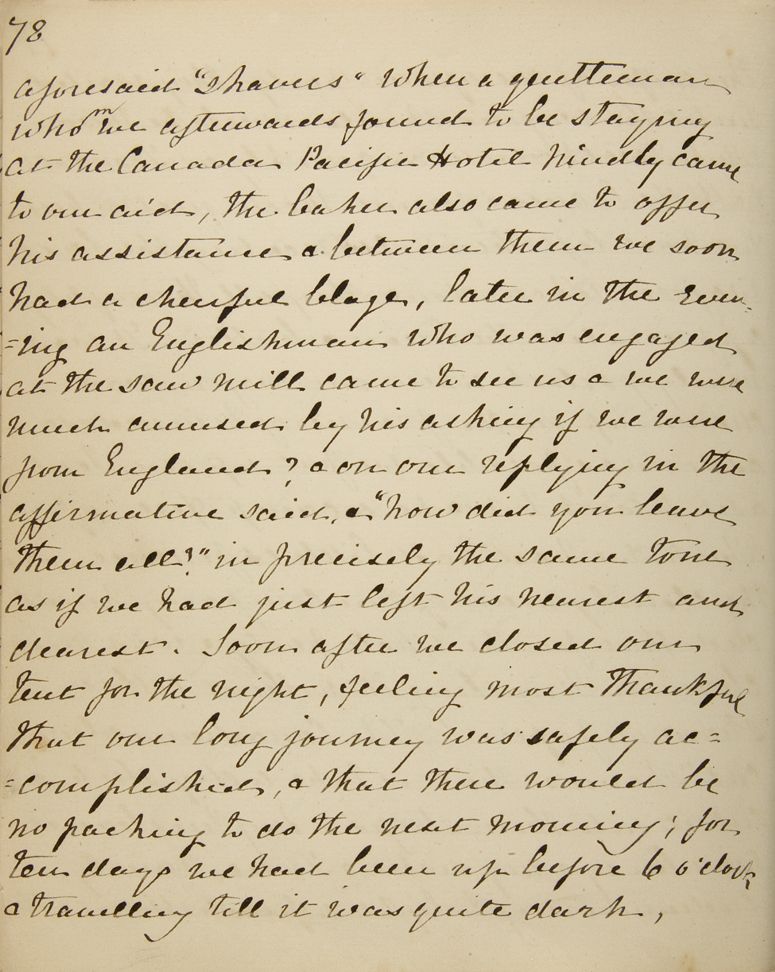 78
aforesaid "shavers" when a gentleman
whom we afterwards found to be staying
at the Canada Pacific Hotel kindly came
to our aid, the baker also came to offer
his assistance & between them we soon
had a cheerful blaze, later in the even-
=ing an Englishman who was engaged
at the saw mill came to see us & we were
much amused by his asking if we were
from England? & on our replying in the
affirmative said, & "how did you leave
them all?" in precisely the same tone
as if we had just left his nearest and
dearest. Soon after we closed our
tent for the night, feeling most thankful
that our long journey was safely ac=
=complished, & that there would be
no packing to do the next morning; for
ten days we had been up before 6 o'clock
& travelling till it was quite dark,